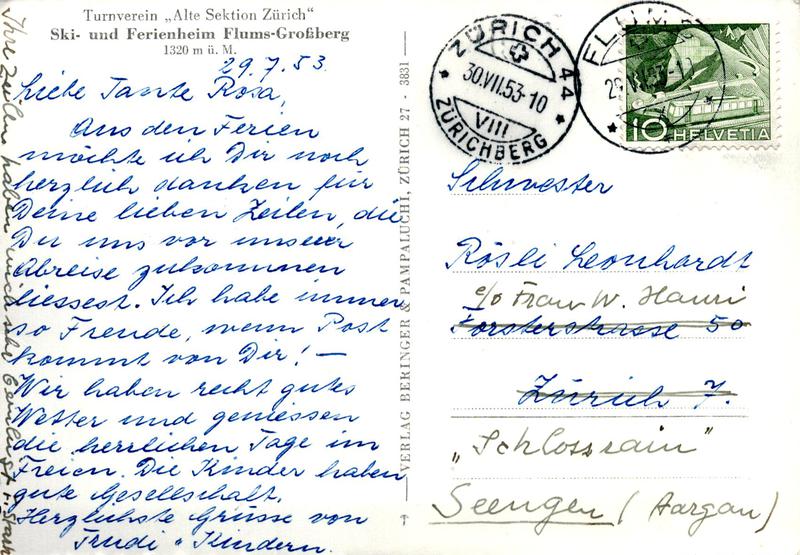 Turnverein „Alte Sektion Zürich"
Ski- und Ferienheim Flums-Großberg
1320 m ü. M.
29.7.53.
Liebe Tante Rosa,
Aus den Ferien
möchte ich Dir noch
herzlich danken für
Deine lieben Zeilen, die
Du uns vor unserer
Abreise zukommen
liessest. Ich habe immer
so Freude, wenn Post
kommt von Dir! –
Wir haben recht gutes
Wetter und geniessen
die herrlichen Tage im
Freien. Die Kinder haben
gute Gesellschaft.
Herzlichste Grüsse von
Trudi u. Kindern.
Ihre Zeilen haben mich sehr
VERLAG BERINGER & PAMPALUCHI, ZÜRICH 27 - 3831
ZÜRICH 44
30.VII.53-10
VIII
ZÜRICHBERG
FLUMS
10 HELVETIA
Schwester
Rösli Leonhardt
c/o Frau W. Hauri
Forsterstrasse 50
Zürich 7.
„Schlossrain"
Seengen (Aargau)